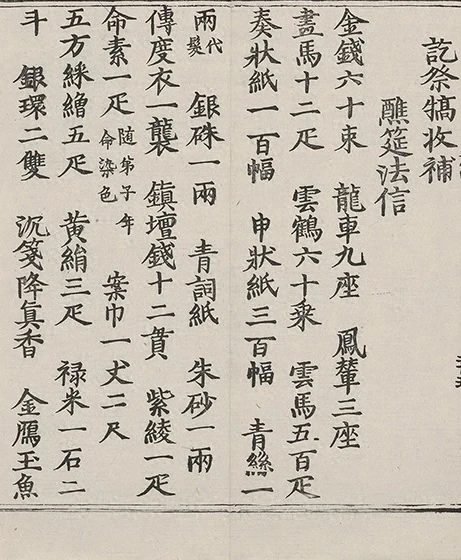 訖祭犒收補
醮筵法信
金錢六十束 龍車九座 鳳輦三座
畫馬十二疋 雲鶴六十乘 雲馬五百疋
奏狀紙一百幅 申狀紙三百幅 青絲一
兩代髮 銀硃一兩 青詞紙 朱砂一兩
傳度衣一襲 鎮壇錢十二貫 紫綾一疋
命素一疋隨弟子年命染色 案巾一丈二尺
五方綵繒五疋 黃絹三疋 禄米一石二
斗 銀環二雙 沉箋降真香 金鴈玉魚